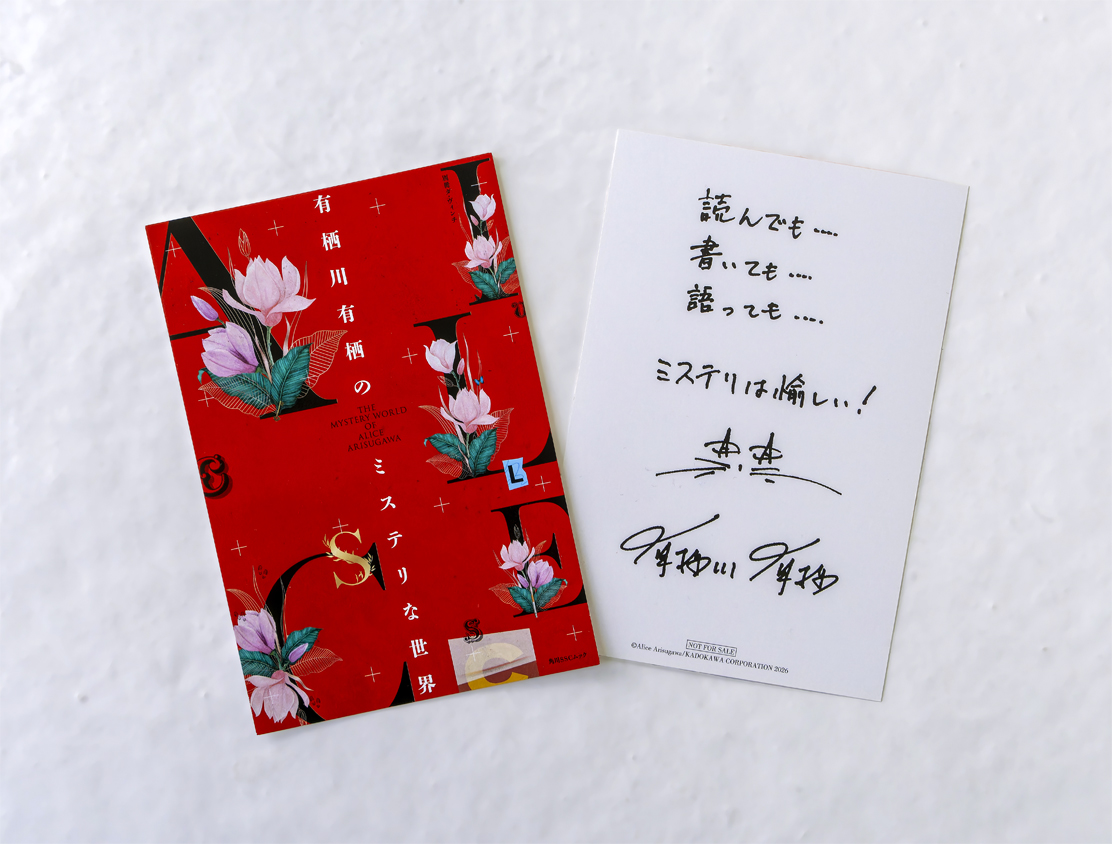 有栖川有栖のミステリな世界
THE
MYSTERY WORLD
OF
ALICE
ARISUGAWA
A
L
I
C
E
S
S
S
L
読んでも....
書いても....
語っても....
ミステリは愉しい!
有栖川 有栖
NOT FOR SALE
©Alice Arisugawa/KADOKAWA CORPORATION 2026